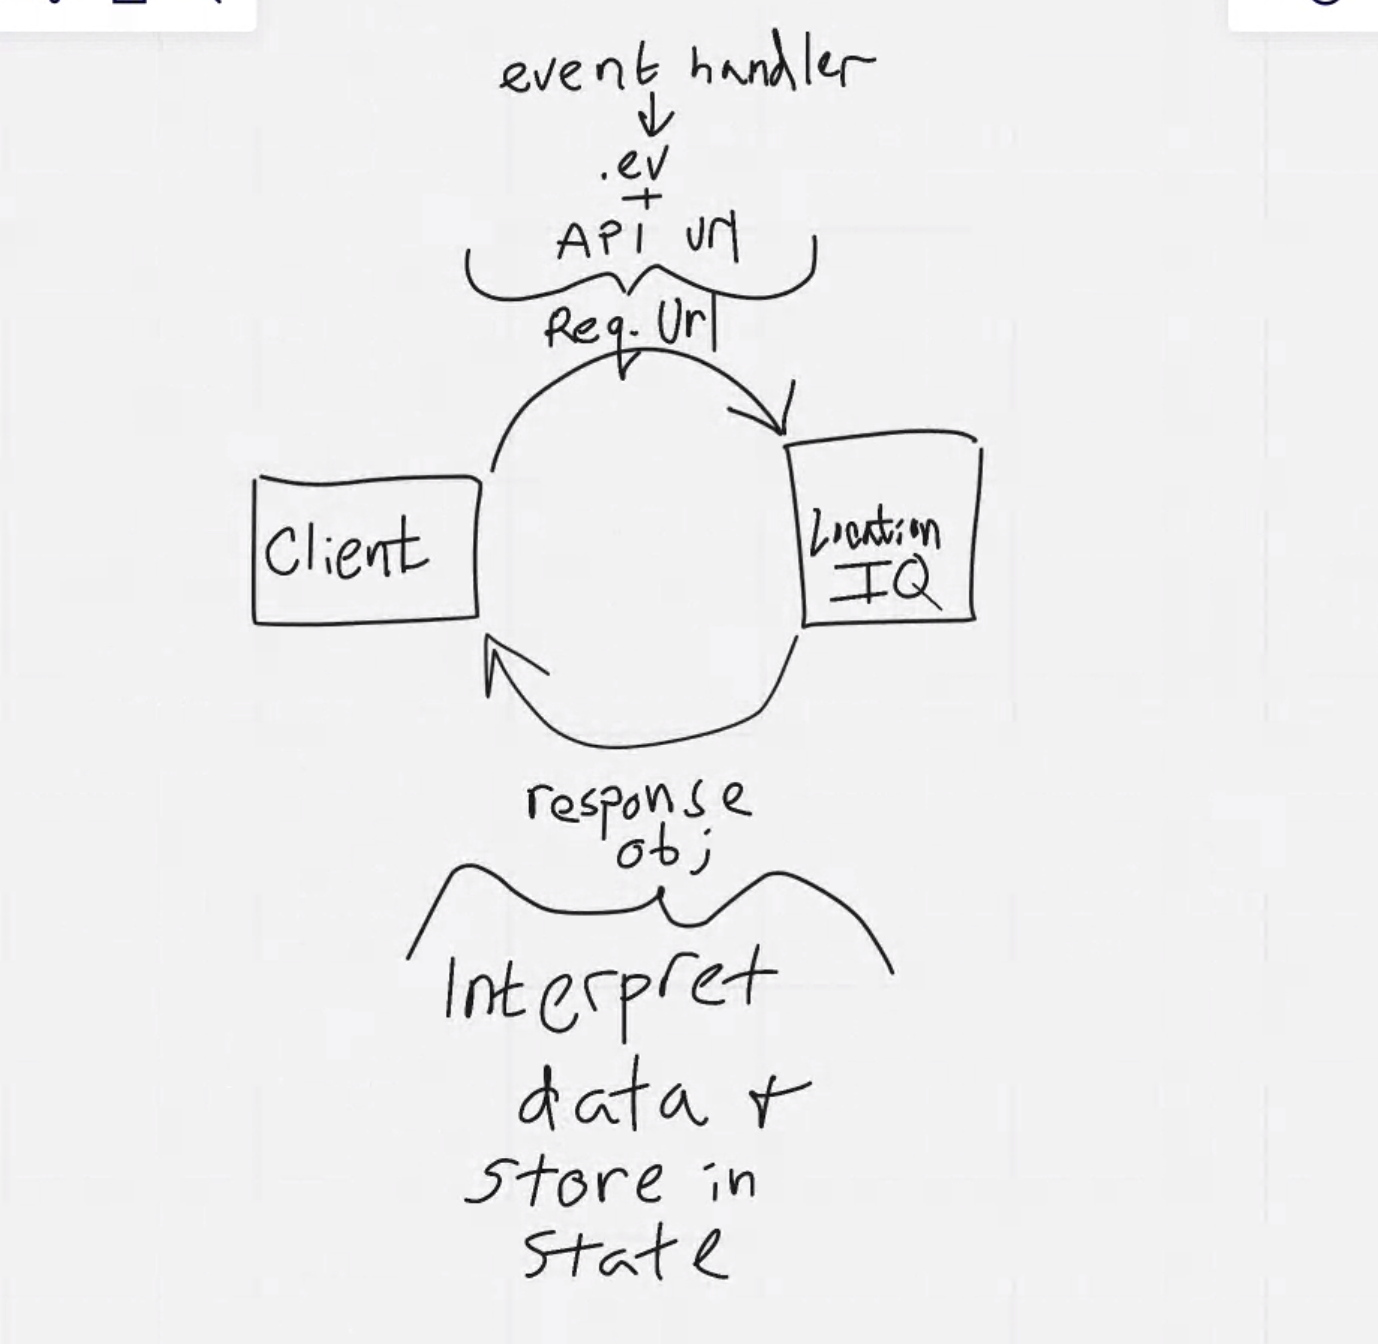 event handler
.ev
+
API url
Req. Url
Client
Location
IQ
response
obj
Interpret
data +
store in
state